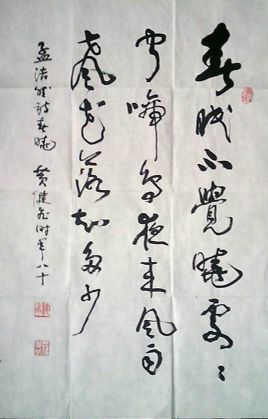 春眠不覺曉處〻
聞啼鳥夜来風雨
聲花落知多少
孟浩然詩春曉 黄 时年八十